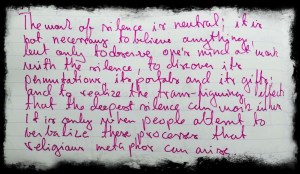 The work of silence is neutral; it is
not necessary to believe anything,
but only to observe one's mind at work
with the silence to discover its
permutations, its portals and its gifts;
and to realize the trans-figuring effect
that the deepest silence can work in her
It is only when people attempt to
verbalize these processes that
religious metaphor can arise